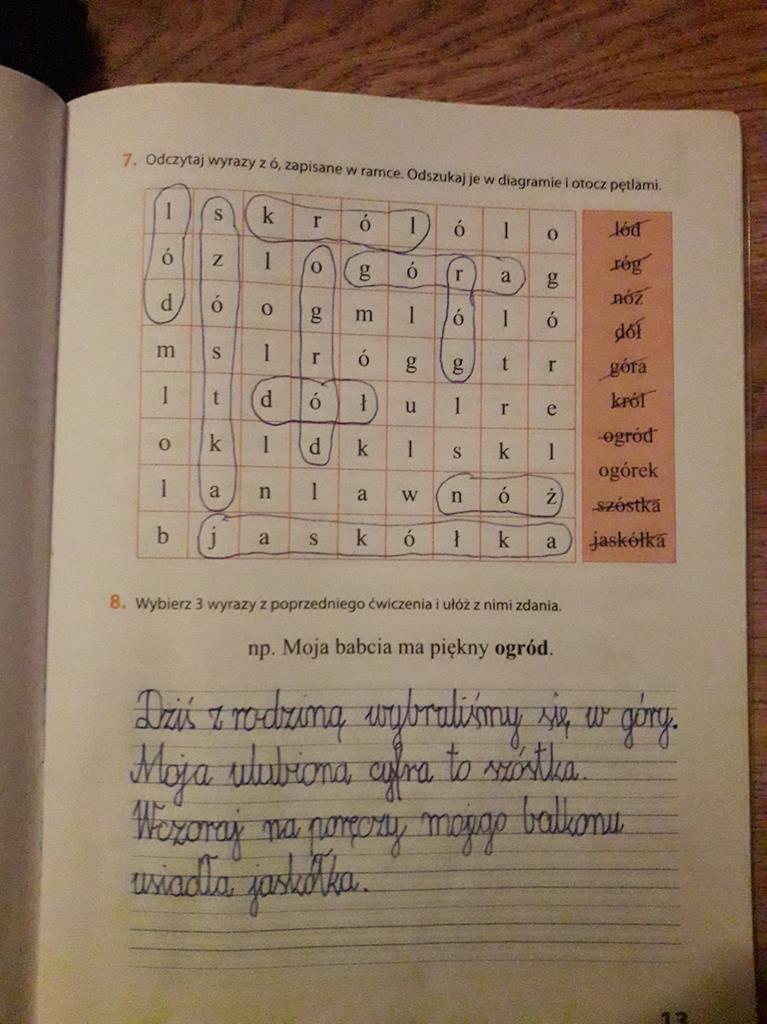 7. Odczytaj wyrazy z ó, zapisane w ramce. Odszukaj je w diagramie i otocz pętlami.
l s k r ó l ó l o
ó z l o g ó r a g
d ó o g m l ó l ó
m s l r ó g g t r
l t d ó ł u l r e
o k l d k l s k l
l a n l a w n ó ż
b j a s k ó ł k a
lód
róg
nóż
dół
góra
król
ogród
ogórek
szóstka
jaskółka
8. Wybierz 3 wyrazy z poprzedniego ćwiczenia i ułóż z nimi zdania.
np. Moja babcia ma piękny ogród.
Dziś z rodziną wybraliśmy się w góry.
Moja ulubiona cyfra to szóstka.
Wczoraj na poręczy mojego balkonu
usiadła jaskółka.
13